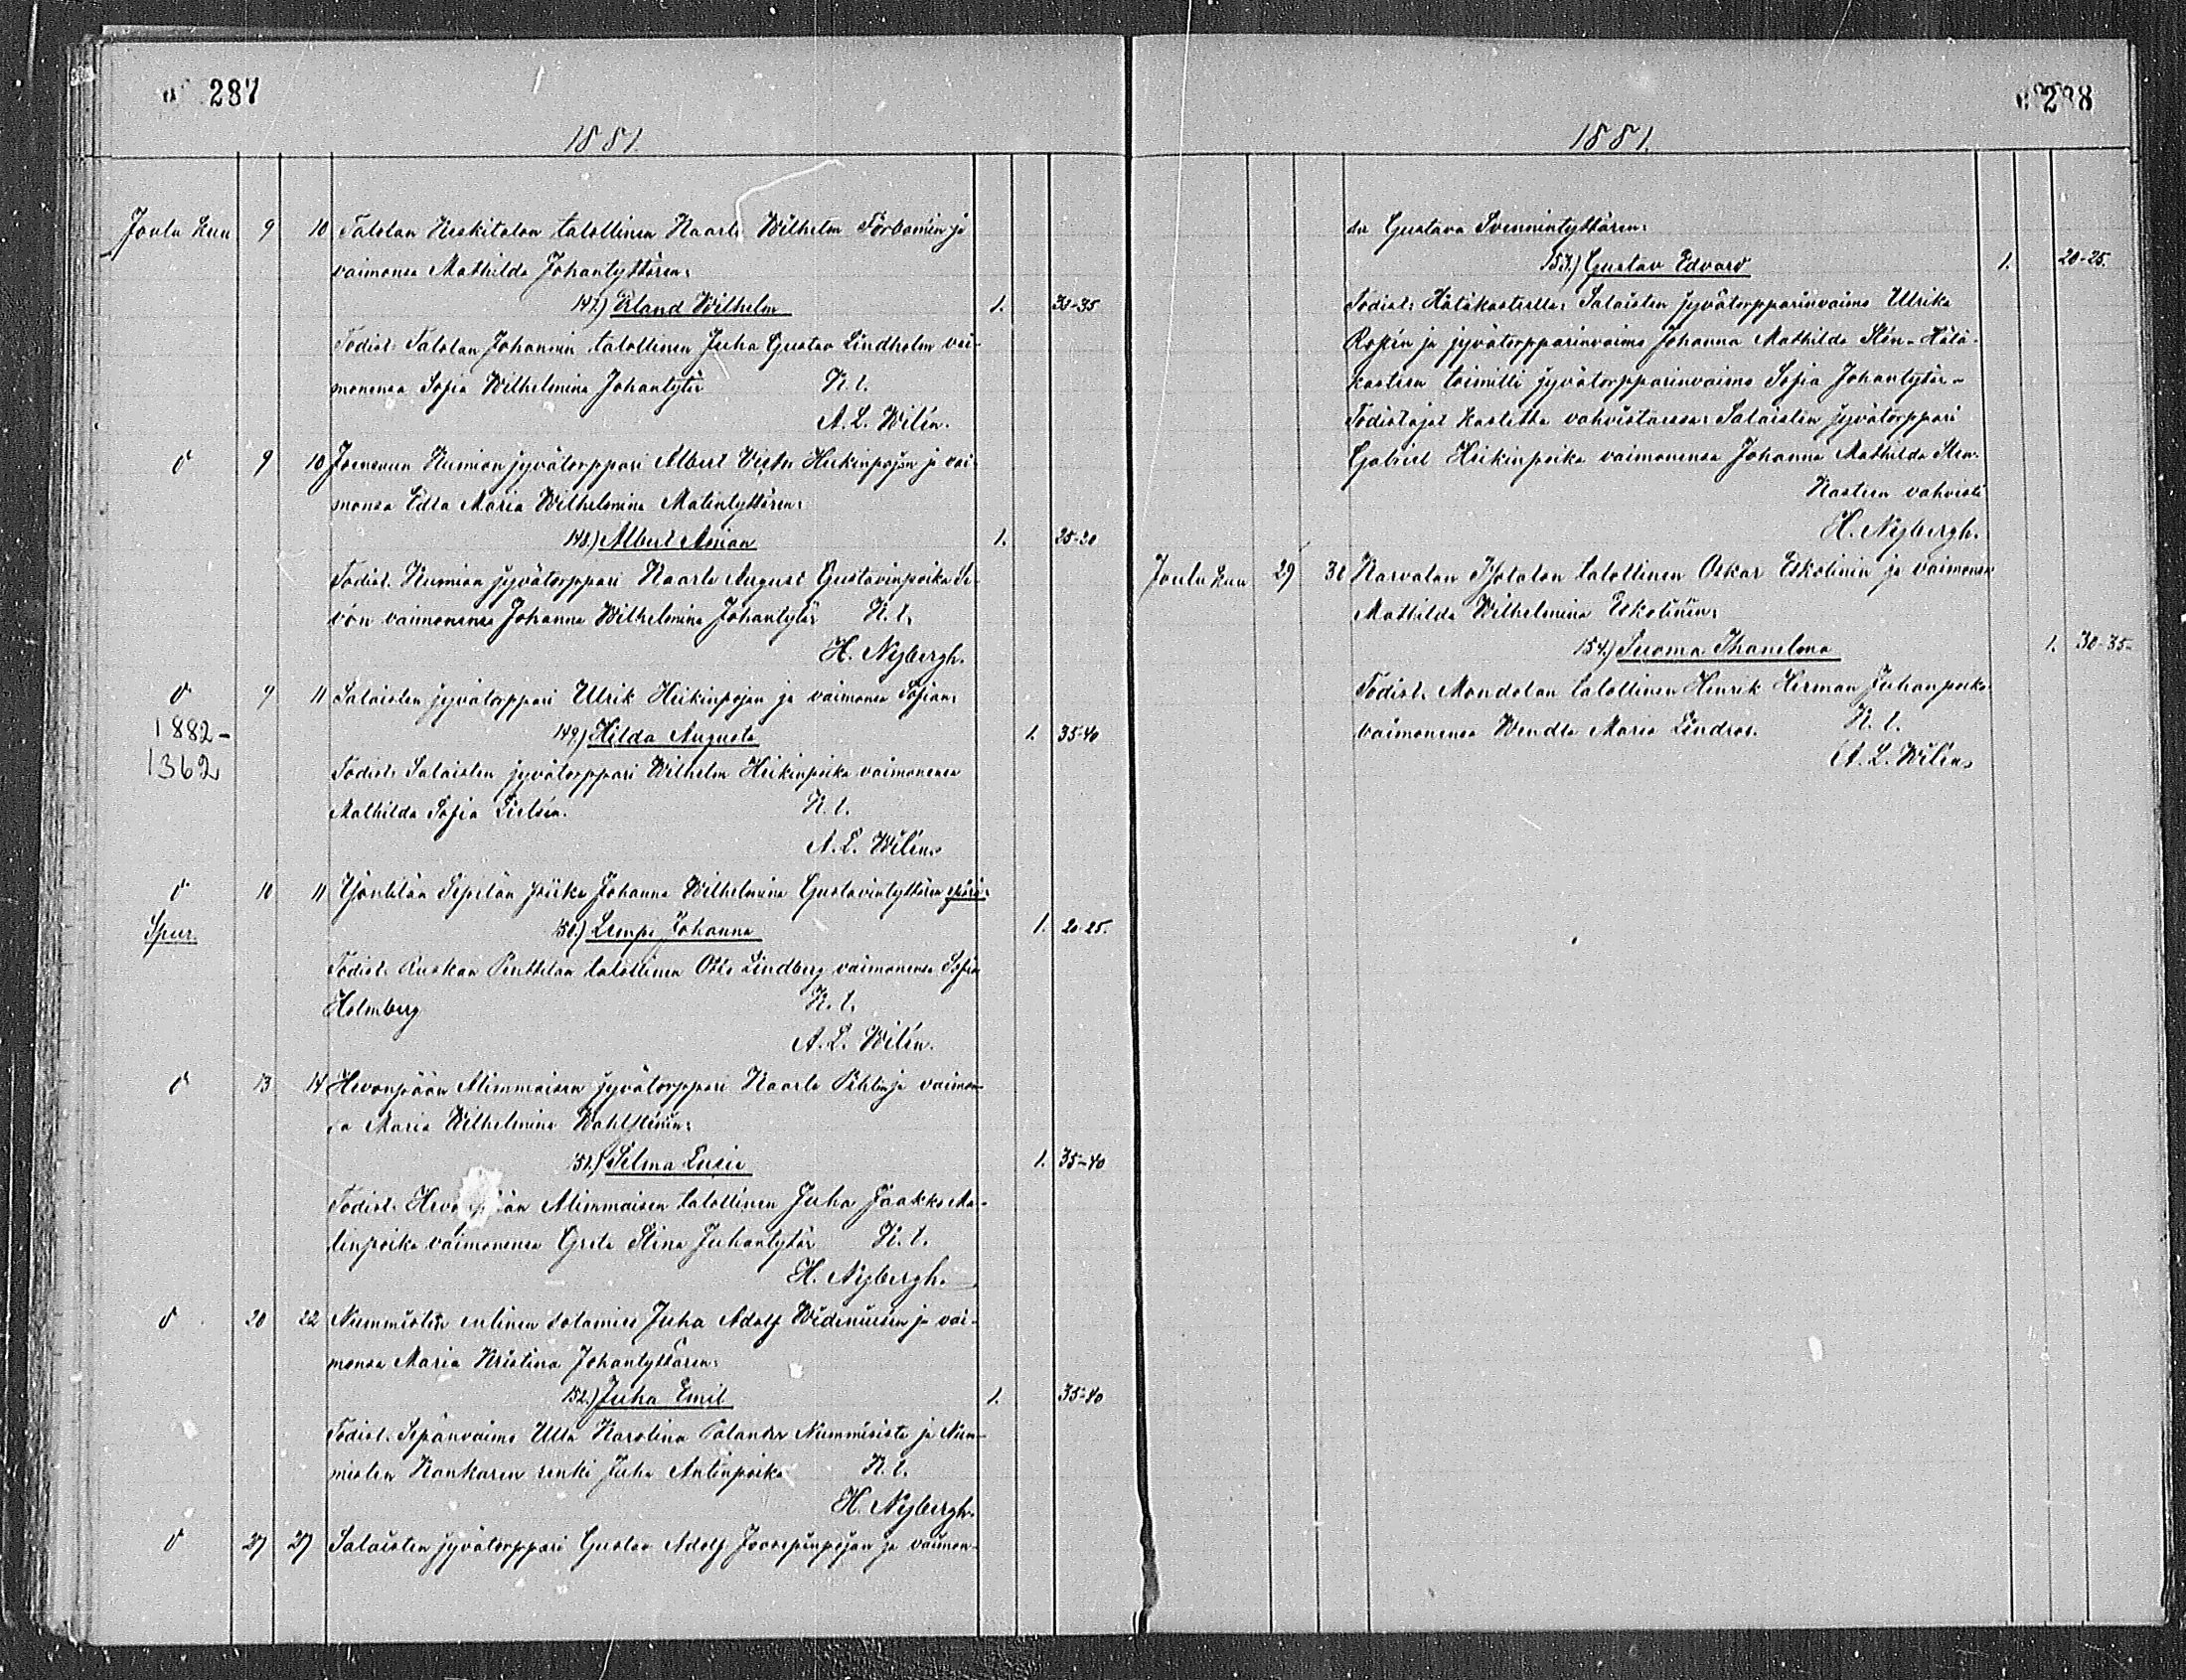 287
1881.
Joulu kuu 9 10 Talolan Keskitalon talollinen Kaarle Wilhelm Forbomin ja
vaimonsa Mathilda Johantyttären:
147.) Erland Wilhelm 1. 30-35
Todist: Talolan Johannin talollinen Juha Gustav Lindholm vai-
monensa Sofia Wilhelmina Johantytär K. t.
A. L. Wilén.
d 9 10 Joensuun Kumion jyvätorppari Albert Victor Heikinpojan ja vai-
monsa Edla Maria Wilhelmina Matintyttären:
148.) Albert Aman 1. 25-30
Todist. Kumion jyvätorppari Kaarle August Gustavinpoika Si-
vón vaimonensa Johanna Wilhelmina Johantytär K. t.
H. Nybergh.
d 9 11 Salaisten jyvätorppari Ulrik Heikinpojan ja vaimonsa Sofian:
1882-
1362
149) Hilda Augusta 1. 35-40
Todist: Salaisten jyvätorppari Wilhelm Heikinpoika vaimonensa
Mathilda Sofia K. t.
A. L. Wilén.
d 10 11 Sepelän piika Johanna Wilhelmina Gustavintyttären
Spur.
150.) Lempi Johanna 1. 20-25.
Todist. Ruskon Penttilän talollinen Otto Lindberg vaimonensa Sofia
Holmberg K. t.
A. L. Wilén.
d 13 14 Hevonpään Alimmaisen jyvätorppari Kaarle Pihlin ja vaimon-
sa Maria Wilhelmina Wahlsténin:
151.) Selma Lusia 1. 35-40
Todist. Alimmaisen talollinen Juha Jaakko Ma-
tinpoika vaimonensa Greta Stina Juhantytär K. t.
H. Nybergh.
d 20 22 Nummisten entinen sotamies Juha Adolf Wideniusen ja vai-
monsa Maria Kristina Johantyttären:
152.) Juha Emil 1. 35-40
Todist. Sepänvaimo Ulla Karolina Palander Nummisista ja Num-
misten Kankaren renki Juha Antinpoika K. t.
H. Nybergh.
d 27 27 Salaisten jyvätorppari Gustav Adolf Joosepinpojan ja vaimon-
288
1881.
sa Gustava Sveninintyttären:
153.) Gustav Edvard 1. 20-25.
Todist: Hätäkasteella: Salaisten jyvätorpparinvaimo Ulrika
Rosén ja jyvätorpparinvaimo Johanna Mathilda Stén- Hätä-
kasteen toimitti jyvätorpparinvaimo Sofia Johantytär-
Todistajat kastetta vahvistaessa: Salaisten jyvätorppari
Gabriel Heikinpoika vaimonensa Johanna Mathilda Sten.
Kasteen vahvisti
H. Nybergh.
Joulu kuu 29 30 Karvalan Isotalon talollinen Oskar Eskolinin ja vaimonsa
Mathilda Wilhelmina Eskolinin:
154.) Suoma Ihanelma 1. 30-35.
Todist. Mondolan talollinen Henrik Herman Juhanpoika
vaimonensa Wendla Maria Lindros. K. t.
A. L. Wilén.